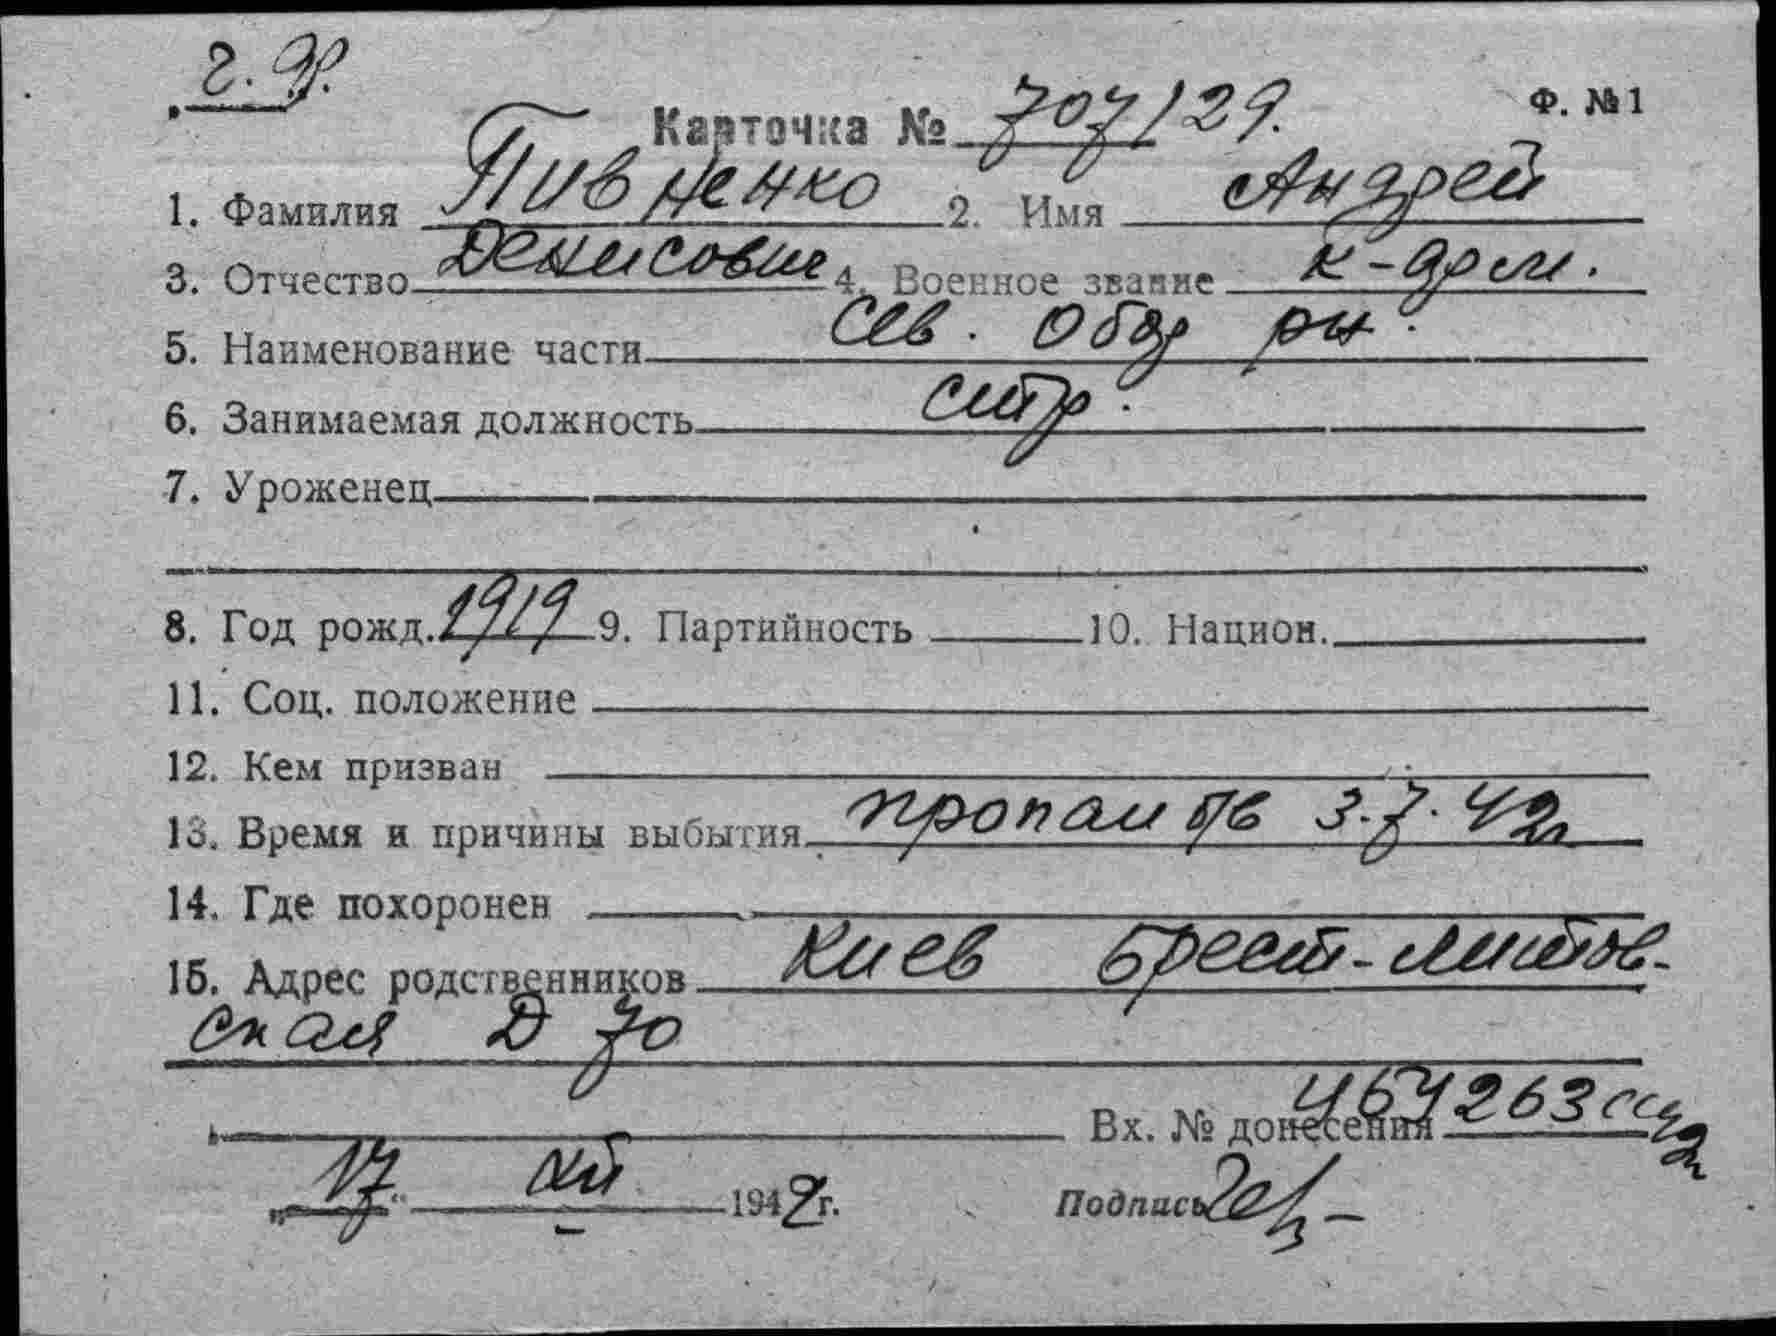 Ч.Ф.
Карточка № 707/29. Ф. №1
1. Фамилия Пивненко 2. Имя Андрей
3. Отчество Денисович 4. Военное звание к-арм.
5. Наименование части Сев. Обор рн.
6. Занимаемая должность стр.
7. Уроженец
8. Год рожд. 1919 9. Партийность 10. Национ.
11. Соц. положение
12. Кем призван
13. Время и причины выбытия пропал б/в 3.7.42г
14. Где похоронен
15. Адрес родственников Киев Брест-Литов-
ская Д 70
Вх. № донесения
„17“ XII 1942г. Подпись